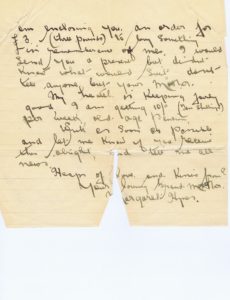 am enclosing you, an order for
£3 (three pounds) to buy something
in remembrance of me. I would
send you a present but did not
know what would suit don't
tell anyone but your Mother.
My health is keeping fairly
good I am getting 10/- (Ten shillings)
per week, old age Pension,
Write as soon as Possible
and let me know if you receive
this alright, and tell me all
news.
Heaps of love, and kisses from
Your loving Grand Mother.
Margaret